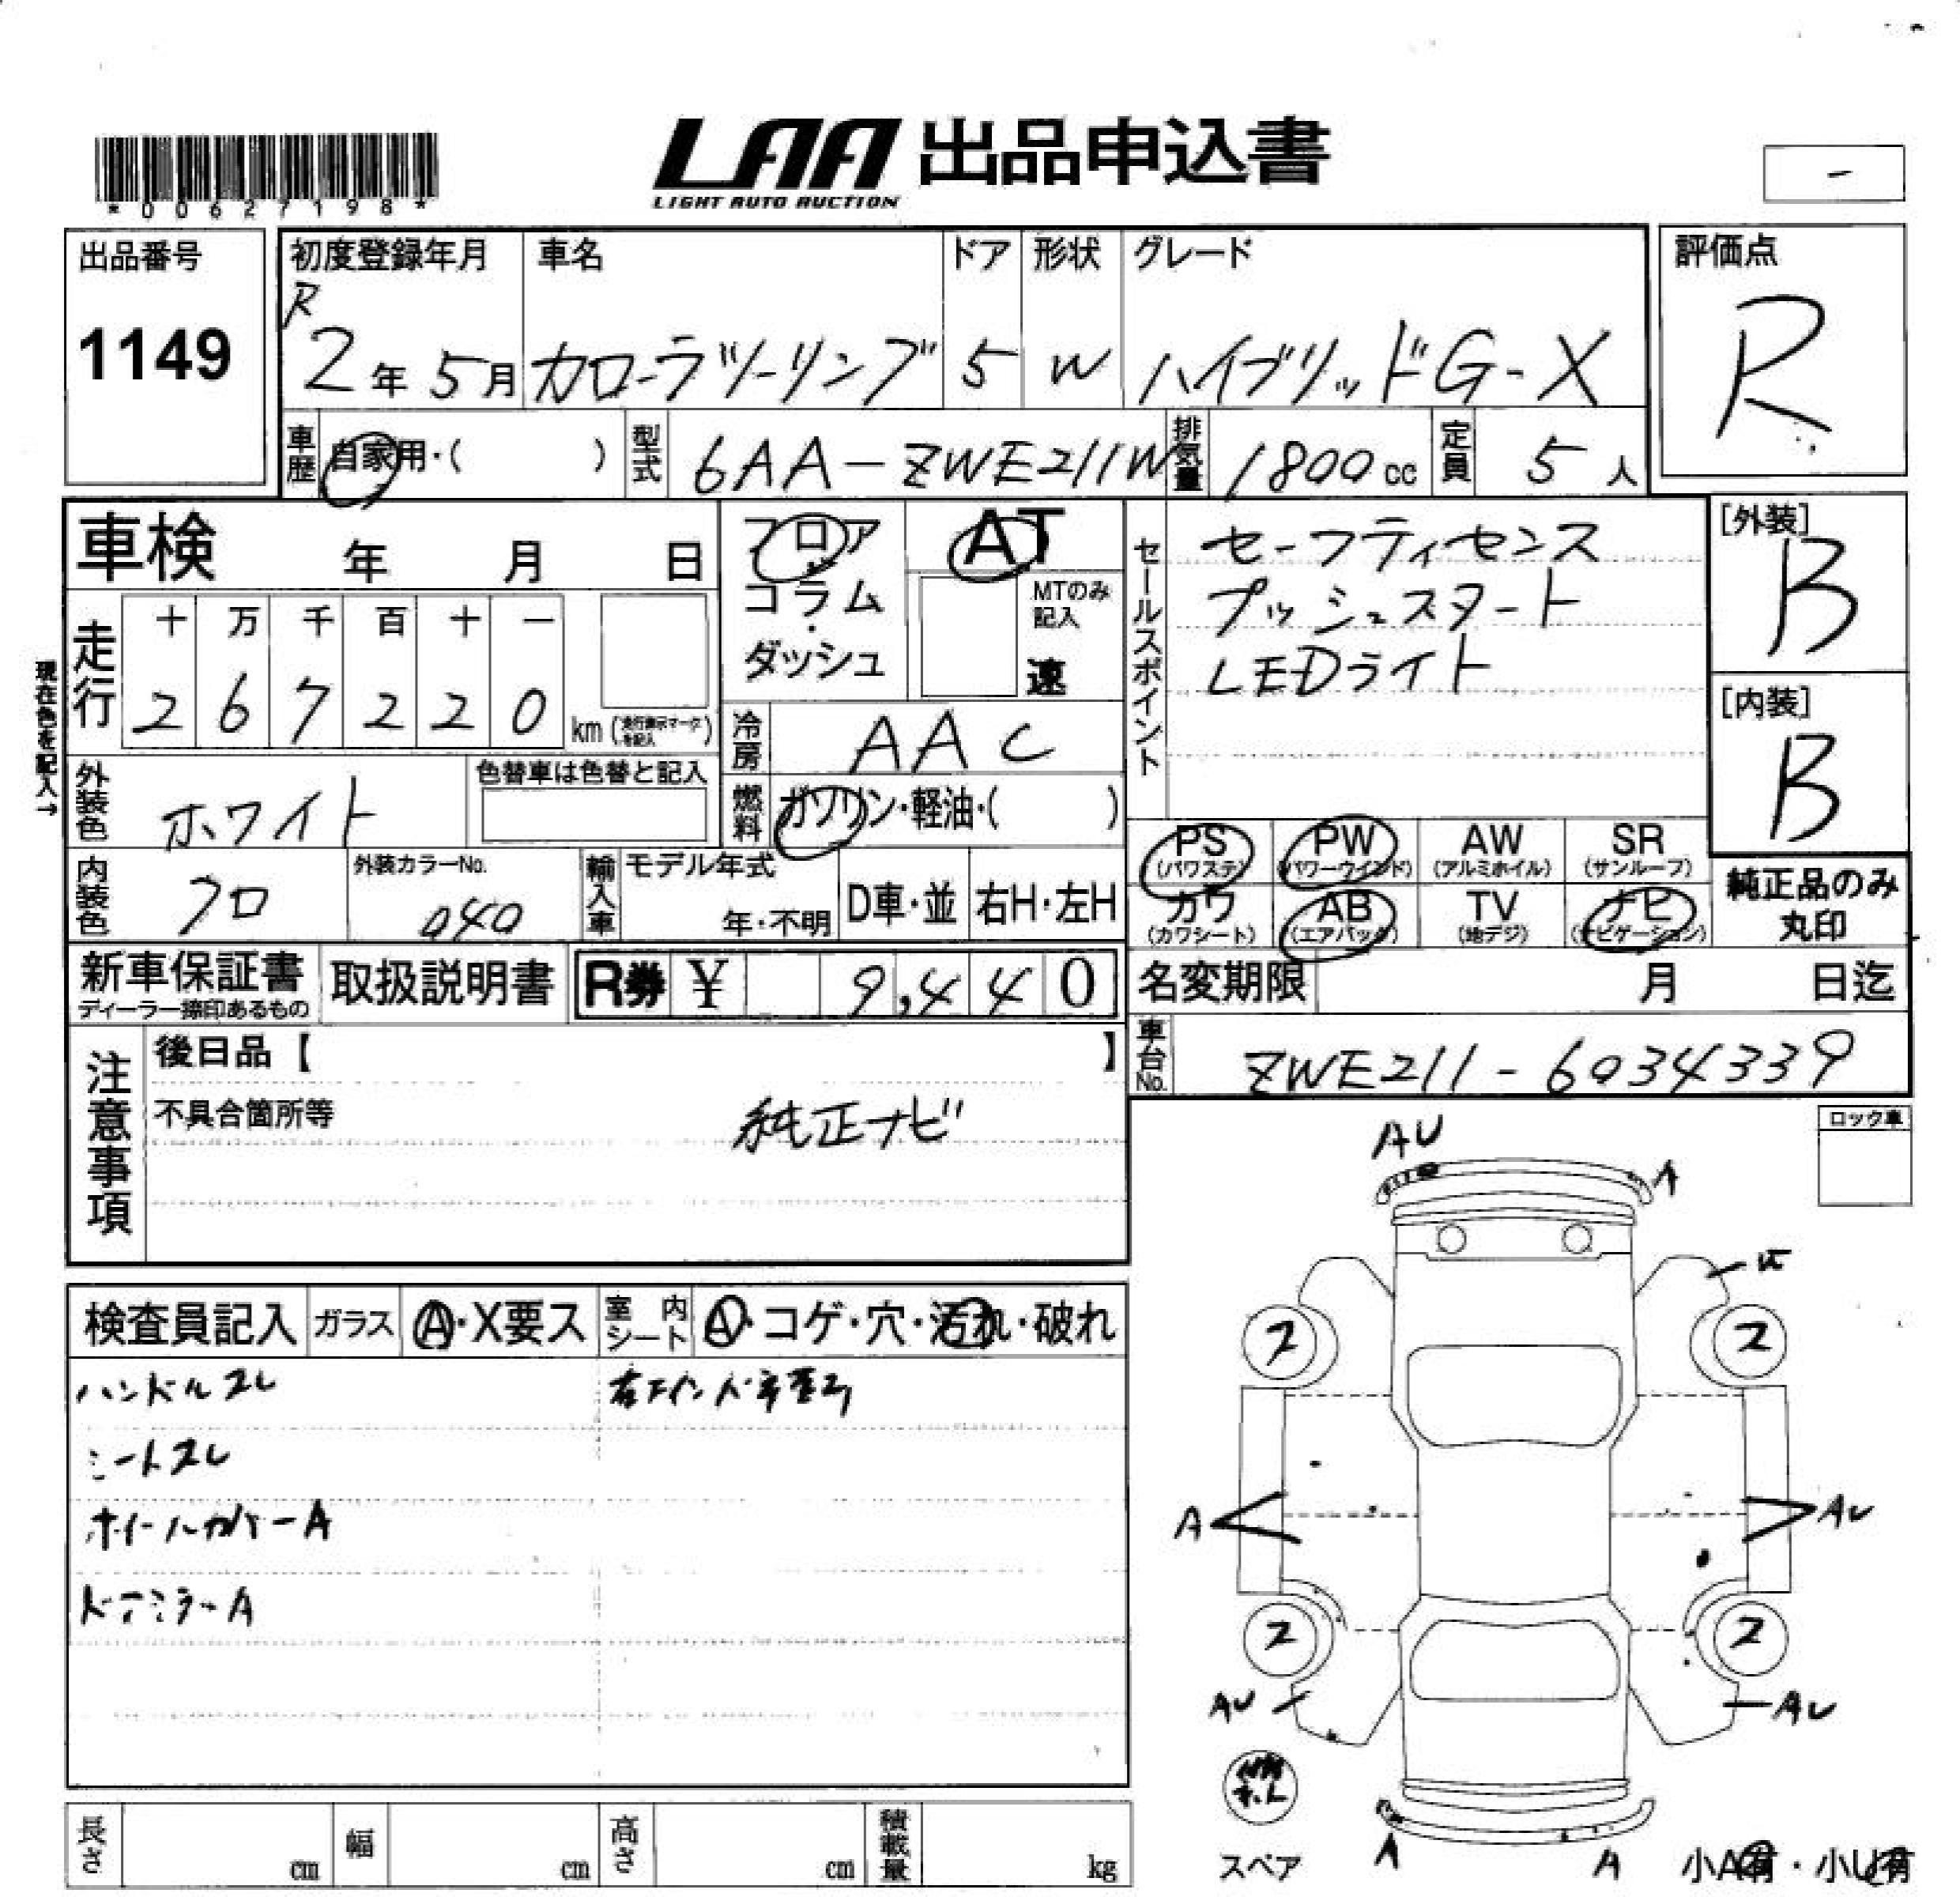 LAA 出品申込書
LIGHT AUTO AUCTION
*00627198*
-
出品番号
1149
初度登録年月
R
2年 5月
車名
カローラツーリング
ドア
5
形状
W
グレード
ハイブリッドG-X
評価点
R
車歴
自家用・( )
型式
6AA-ZWE211W
排気量
1800cc
定員
5人
車検 年 月 日
フロア
コラム
・
ダッシュ
AT
MTのみ
記入
速
セールスポイント
セーフティセンス
プッシュスタート
LEDライト
[外装]
B
[内装]
B
現在色を記入→
走行
十 万 千 百 十 一
2 6 7 2 2 0
km (走行表示マークを記入)
冷房
AAC
外装色
ホワイト
色替車は色替と記入
燃料
ガソリン・軽油・( )
内装色
クロ
外装カラーNo.
040
輸入車
モデル年式
年・不明
D車・並
右H・左H
PS
(パワステ)
PW
(パワーウインド)
AW
(アルミホイル)
SR
(サンルーフ)
カワ
(カワシート)
AB
(エアバック)
TV
(地デジ)
ナビ
(ナビゲーション)
純正品のみ
丸印
新車保証書
ディーラー捺印あるもの
取扱説明書
R券 ¥ 9,440
名変期限 月 日迄
車台No.
ZWE211-6034339
注意事項
後日品【 】
不具合箇所等
純正ナビ
ロック車
AU
A
検査員記入
ガラス
A・X要ス
室内シート
A・コゲ・穴・汚れ・破れ
ハンドルスレ
シートスレ
ホイールカバーA
ドアミラーA
2
2
A
AU
2
2
AU
AU
スペア
A
A
小A有・小U有
長さ cm
幅 cm
高さ cm
積載量 kg